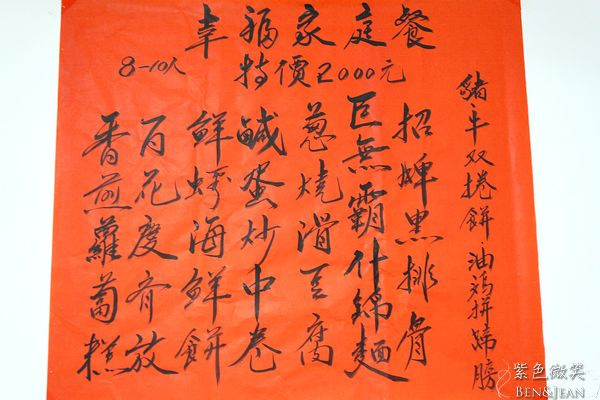 幸福家庭餐
8-10人
特價2000元
豬牛双捲餅 油鸡拼蹄膀
招牌黑排骨
巨無霸什錦麵
蔥燒滑豆腐
鹹蛋炒中卷
鮮蚵海鮮餅
百花度齊放
香煎蘿蔔糕
紫色微笑
BEN&JEAN